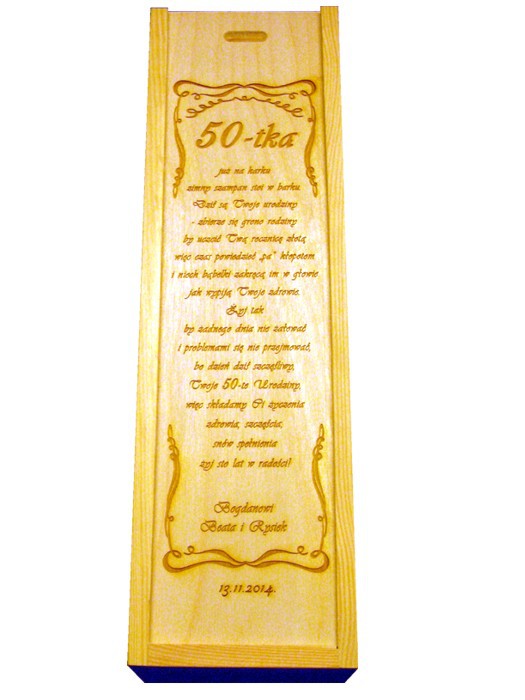 50-tka
już na karku
zimny szampan stoi w barku.
Dziś są Twoje urodziny
- zbierze się grono rodziny
by uczcić Twą rocznicę złotą
więc czas powiedzieć „pa” kłopotom
i niech bąbelki zakręcą im w głowie
jak wypiją Twoje zdrowie.
Żyj tak
by żadnego dnia nie żałować
i problemami się nie przejmować,
bo dzień dziś szczęśliwy,
Twoje 50-te Urodziny,
więc składamy Ci życzenia
zdrowia, szczęścia,
snów spełnienia
żyj sto lat w radości!
Bogdanowi
Beata i Rysiek
13.11.2014.